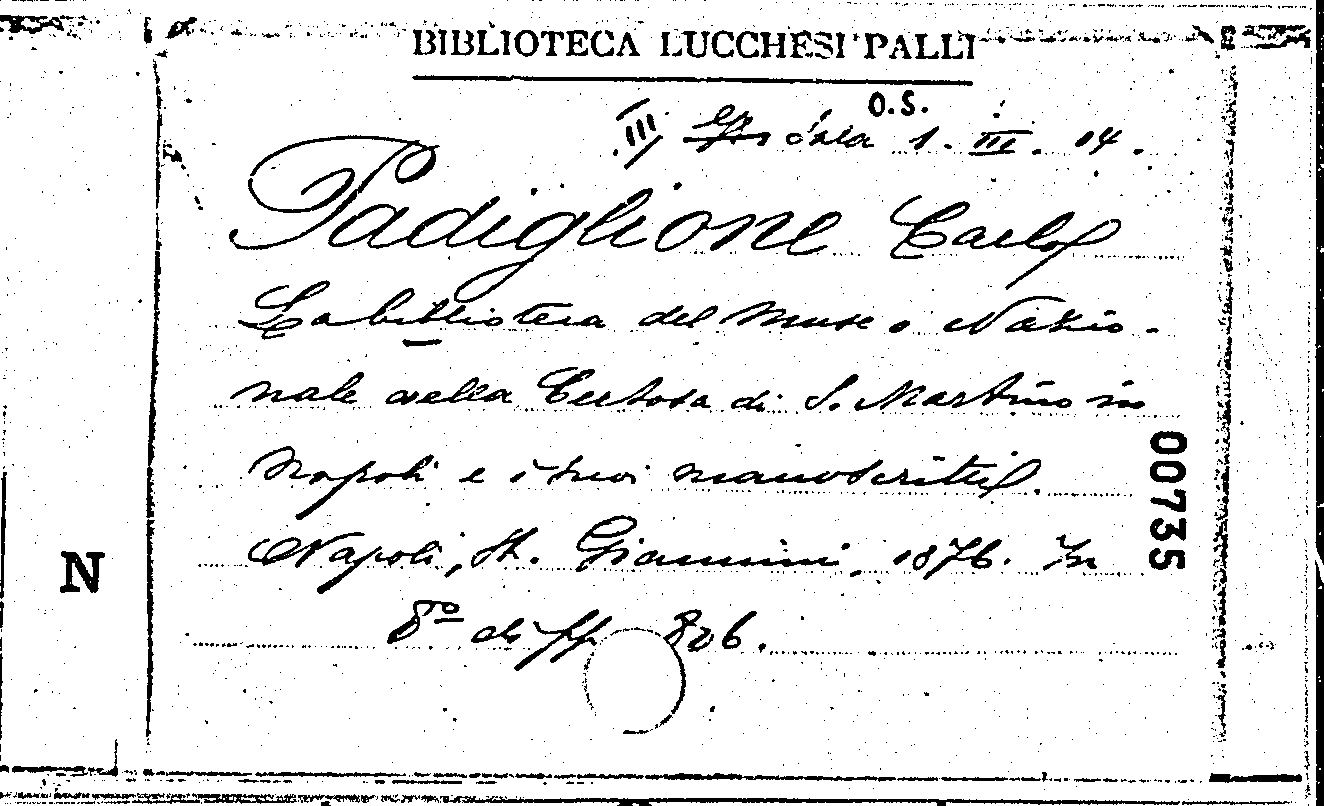 BIBLIOTECA LUCCHESI PALLI
O.S.
III Sala 1. III. 14.
Padiglione Carlo
La biblioteca del Museo Nazio-
nale nella Certosa di S. Martino in
Napoli e i suoi manoscritti.
Napoli, St. Giannini, 1876. In
8º di pp. 806.
00735
N